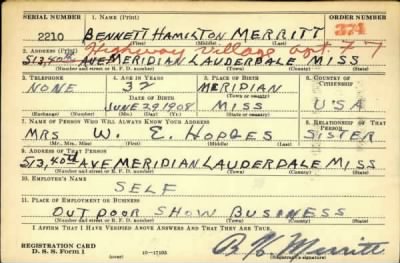 SERIAL NUMBER 1. NAME (Print) ORDER NUMBER
2210 BENNETT HAMILTON MERRITT 374
(First) (Middle) (Last)
2. ADDRESS (Print) Highway Village apt 77
513, 40th AVE MERIDIAN LAUDERDALE MISS
(Number and street or R. F. D. number) (Town) (County) (State)
3. TELEPHONE 4. AGE IN YEARS 5. PLACE OF BIRTH 6. COUNTRY OF CITIZENSHIP
NONE 32 MERIDIAN
DATE OF BIRTH (Town or county)
JUNE 29 1908 MISS USA
(Mo.) (Day) (Yr.) (State or country)
7. NAME OF PERSON WHO WILL ALWAYS KNOW YOUR ADDRESS 8. RELATIONSHIP OF THAT PERSON
MRS W. E. HODGES SISTER
(Mr., Mrs., Miss) (First) (Middle) (Last)
9. ADDRESS OF THAT PERSON
513, 40th AVE MERIDIAN LAUDERDALE MISS
(Number and street or R. F. D. number) (Town) (County) (State)
10. EMPLOYER'S NAME
SELF
11. PLACE OF EMPLOYMENT OR BUSINESS
OUTDOOR SHOW BUSINESS
(Number and street or R. F. D. number) (Town) (County) (State)
I AFFIRM THAT I HAVE VERIFIED ABOVE ANSWERS AND THAT THEY ARE TRUE.
REGISTRATION CARD
D. S. S. Form 1 16—17105 B. H. Merritt
(Registrant's signature)